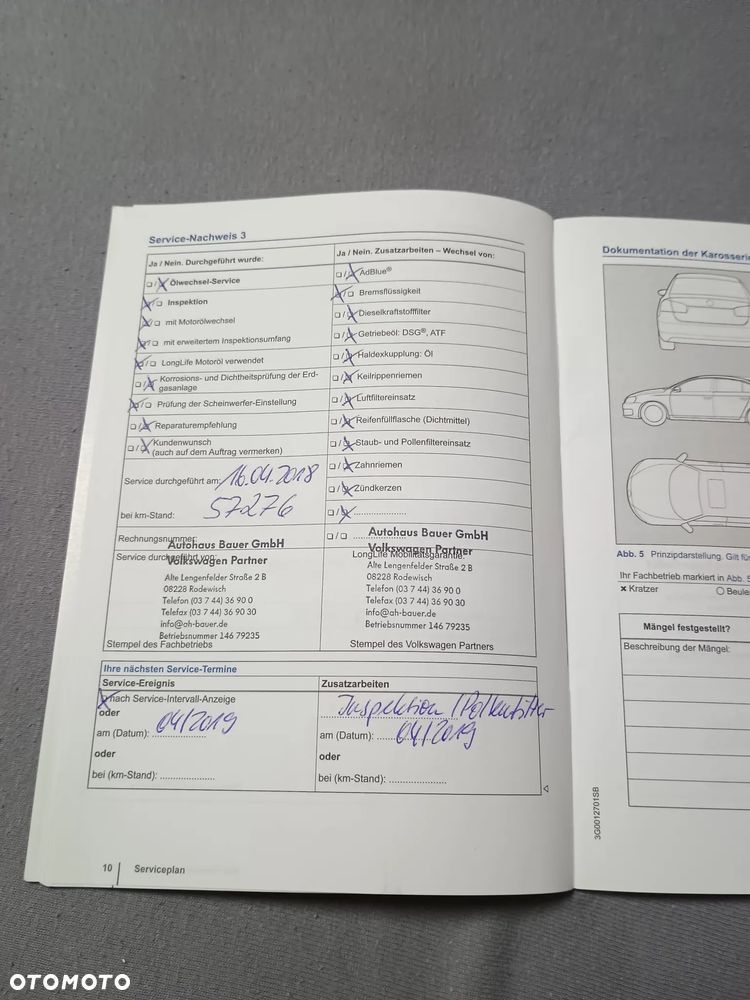 Service-Nachweis 3
Ja / Nein. Durchgeführt wurde:
Ölwechsel-Service
Inspektion
mit Motorölwechsel
mit erweitertem Inspektionsumfang
LongLife Motoröl verwendet
Korrosions- und Dichtheitsprüfung der Erd-
gasanlage
Prüfung der Scheinwerfer-Einstellung
Reparaturempfehlung
Kundenwunsch
(auch auf dem Auftrag vermerken)
Service durchgeführt am: 16.04.2018
bei km-Stand: 57276
Rechnungsnummer:
Service durchgeführt von:
Autohaus Bauer GmbH
Volkswagen Partner
Alte Lengenfelder Straße 2 B
08228 Rodewisch
Telefon (03 7 44) 36 90 0
Telefax (03 7 44) 36 90 30
info@ah-bauer.de
Betriebsnummer 146 79235
Stempel des Fachbetriebs
Ja / Nein. Zusatzarbeiten – Wechsel von:
AdBlue®
Bremsflüssigkeit
Dieselkraftstofffilter
Getriebeöl: DSG®, ATF
Haldexkupplung: Öl
Keilrippenriemen
Luftfiltereinsatz
Reifenfüllflasche (Dichtmittel)
Staub- und Pollenfiltereinsatz
Zahnriemen
Zündkerzen
LongLife Mobilitätsgarantie:
Autohaus Bauer GmbH
Volkswagen Partner
Alte Lengenfelder Straße 2 B
08228 Rodewisch
Telefon (03 7 44) 36 90 0
Telefax (03 7 44) 36 90 30
info@ah-bauer.de
Betriebsnummer 146 79235
Stempel des Volkswagen Partners
Ihre nächsten Service-Termine
Service-Ereignis
nach Service-Intervall-Anzeige
oder
am (Datum): 04/2019
oder
bei (km-Stand): ......................
Zusatzarbeiten
Inspektion / Pollenfilter
am (Datum): 04/2019
oder
bei (km-Stand): ......................
10 Serviceplan
Dokumentation der Karosserie
Abb. 5 Prinzipdarstellung. Gilt für
Ihr Fachbetrieb markiert in Abb. 5
Kratzer
Beule
Mängel festgestellt?
Beschreibung der Mängel:
3G0012701SB
OTOMOTO